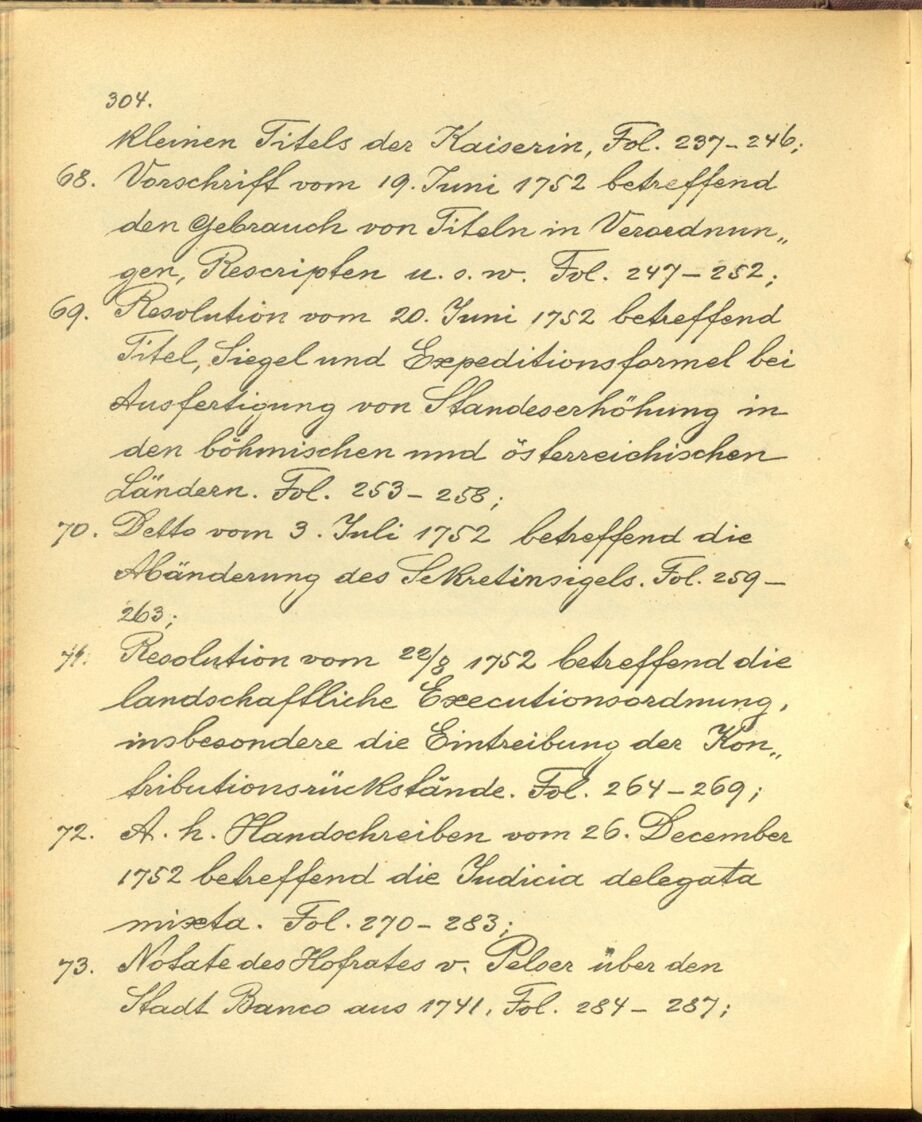 304.
kleinen Titels der Kaiserin, Fol. 237–246;
68. Vorschrift vom 19. Juni 1752 betreffend
den Gebrauch von Titeln in Verordnun„
gen, Rescripten u. s. w. Fol. 247–252;
69. Resolution vom 20. Juni 1752 betreffend
Titel, Siegel und Expeditionsformel bei
Ausfertigung von Standeserhöhung in
den böhmischen und österreichischen
Ländern. Fol. 253–258;
70. Detto vom 3. Juli 1752 betreffend die
Abänderung des Sekretinsigels. Fol. 259–
263;
71. Resolution vom 22/8 1752 betreffend die
landschaftliche Executionsordnung,
insbesondere die Eintreibung der Kon„
tributionsrückstände. Fol. 264–269;
72. A. h. Handschreiben vom 26. December
1752 betreffend die Judicia delegata
mixta. Fol. 270–283;
73. Notate des Hofrates v. Pelser über den
Stadt Banco aus 1741, Fol. 284–287;